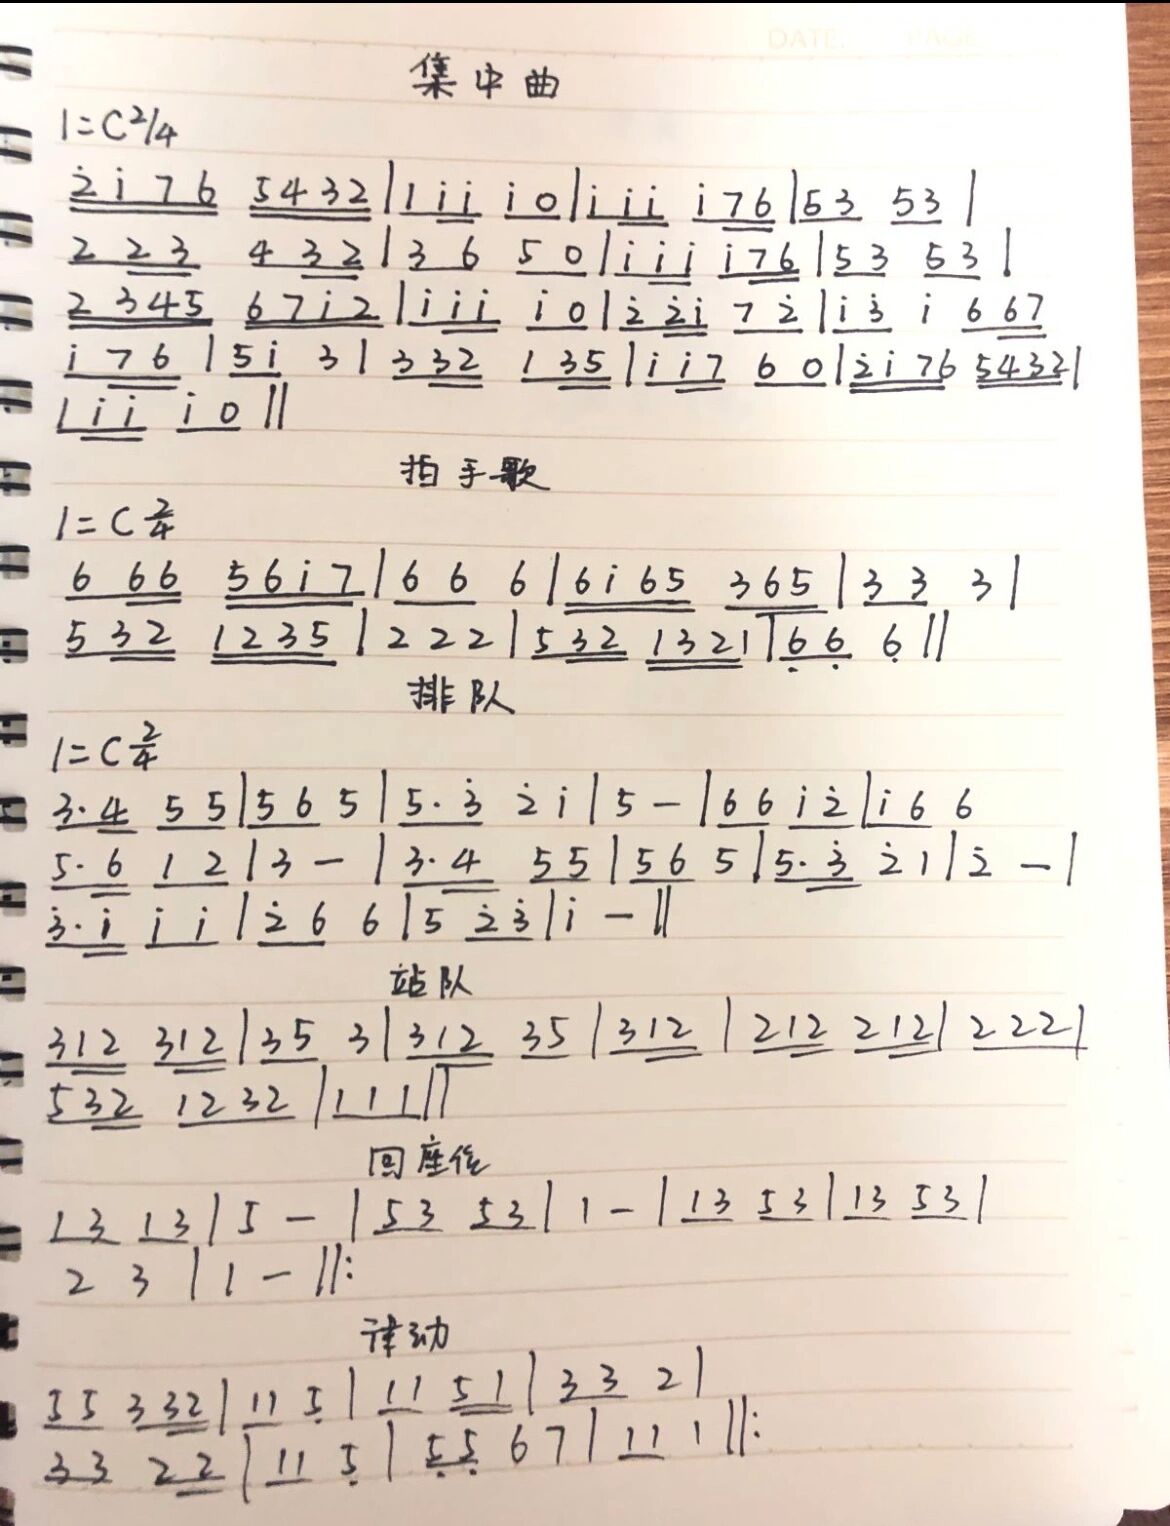 DATE. PAGE
集中曲
1=C2/4
2̇ i 7 6 5 4 3 2 | 1 i i i 0 | i i i i 7 6 | 5 3 5 3 |
2 2 3 4 3 2 | 3 6 5 0 | i i i i 7 6 | 5 3 5 3 |
2 3 4 5 6 7 i 2 | i i i i 0 | 2̇ 2̇ i 7 2̇ | i 3̇ i 6 6 7
i 7 6 | 5 i 3 | 3 3 2 1 3 5 | i i 7 6 0 | 2̇ i 7 6 5 4 3 2 |
1 i i i 0 ‖
拍手歌
1=C 2/4
6 6 6 5 6 i 7 | 6 6 6 | 6 i 6 5 3 6 5 | 3 3 3 |
5 3 2 1 2 3 5 | 2 2 2 | 5 3 2 1 3 2 1 | 6̣ 6̣ 6̣ ‖
排队
1=C 2/4
3· 4 5 5 | 5 6 5 | 5· 3̇ 2̇ i | 5 − | 6 6 i 2̇ | i 6 6
5· 6 1 2 | 3 − | 3· 4 5 5 | 5 6 5 | 5· 3̇ 2̇ 1 | 2̇ − |
3̇· i i i | 2̇ 6 6 | 5 2̇ 3̇ | i − ‖
站队
3 1 2 3 1 2 | 3 5 3 | 3 1 2 3 5 | 3 1 2 | 2 1 2 2 1 2 | 2 2 2 |
5 3 2 1 2 3 2 | 1 1 1 ‖
回座位
1 3 1 3 | 5 − | 5 3 5 3 | 1 − | 1 3 5 3 | 1 3 5 3 |
2 3 | 1 − ‖:
律动
5 5 3 3 2 | 1 1 5̣ | 1 1 5 1 | 3 3 2 |
3 3 2 2 | 1 1 5̣ | 5̣ 5̣ 6 7 | 1 1 1 ‖: